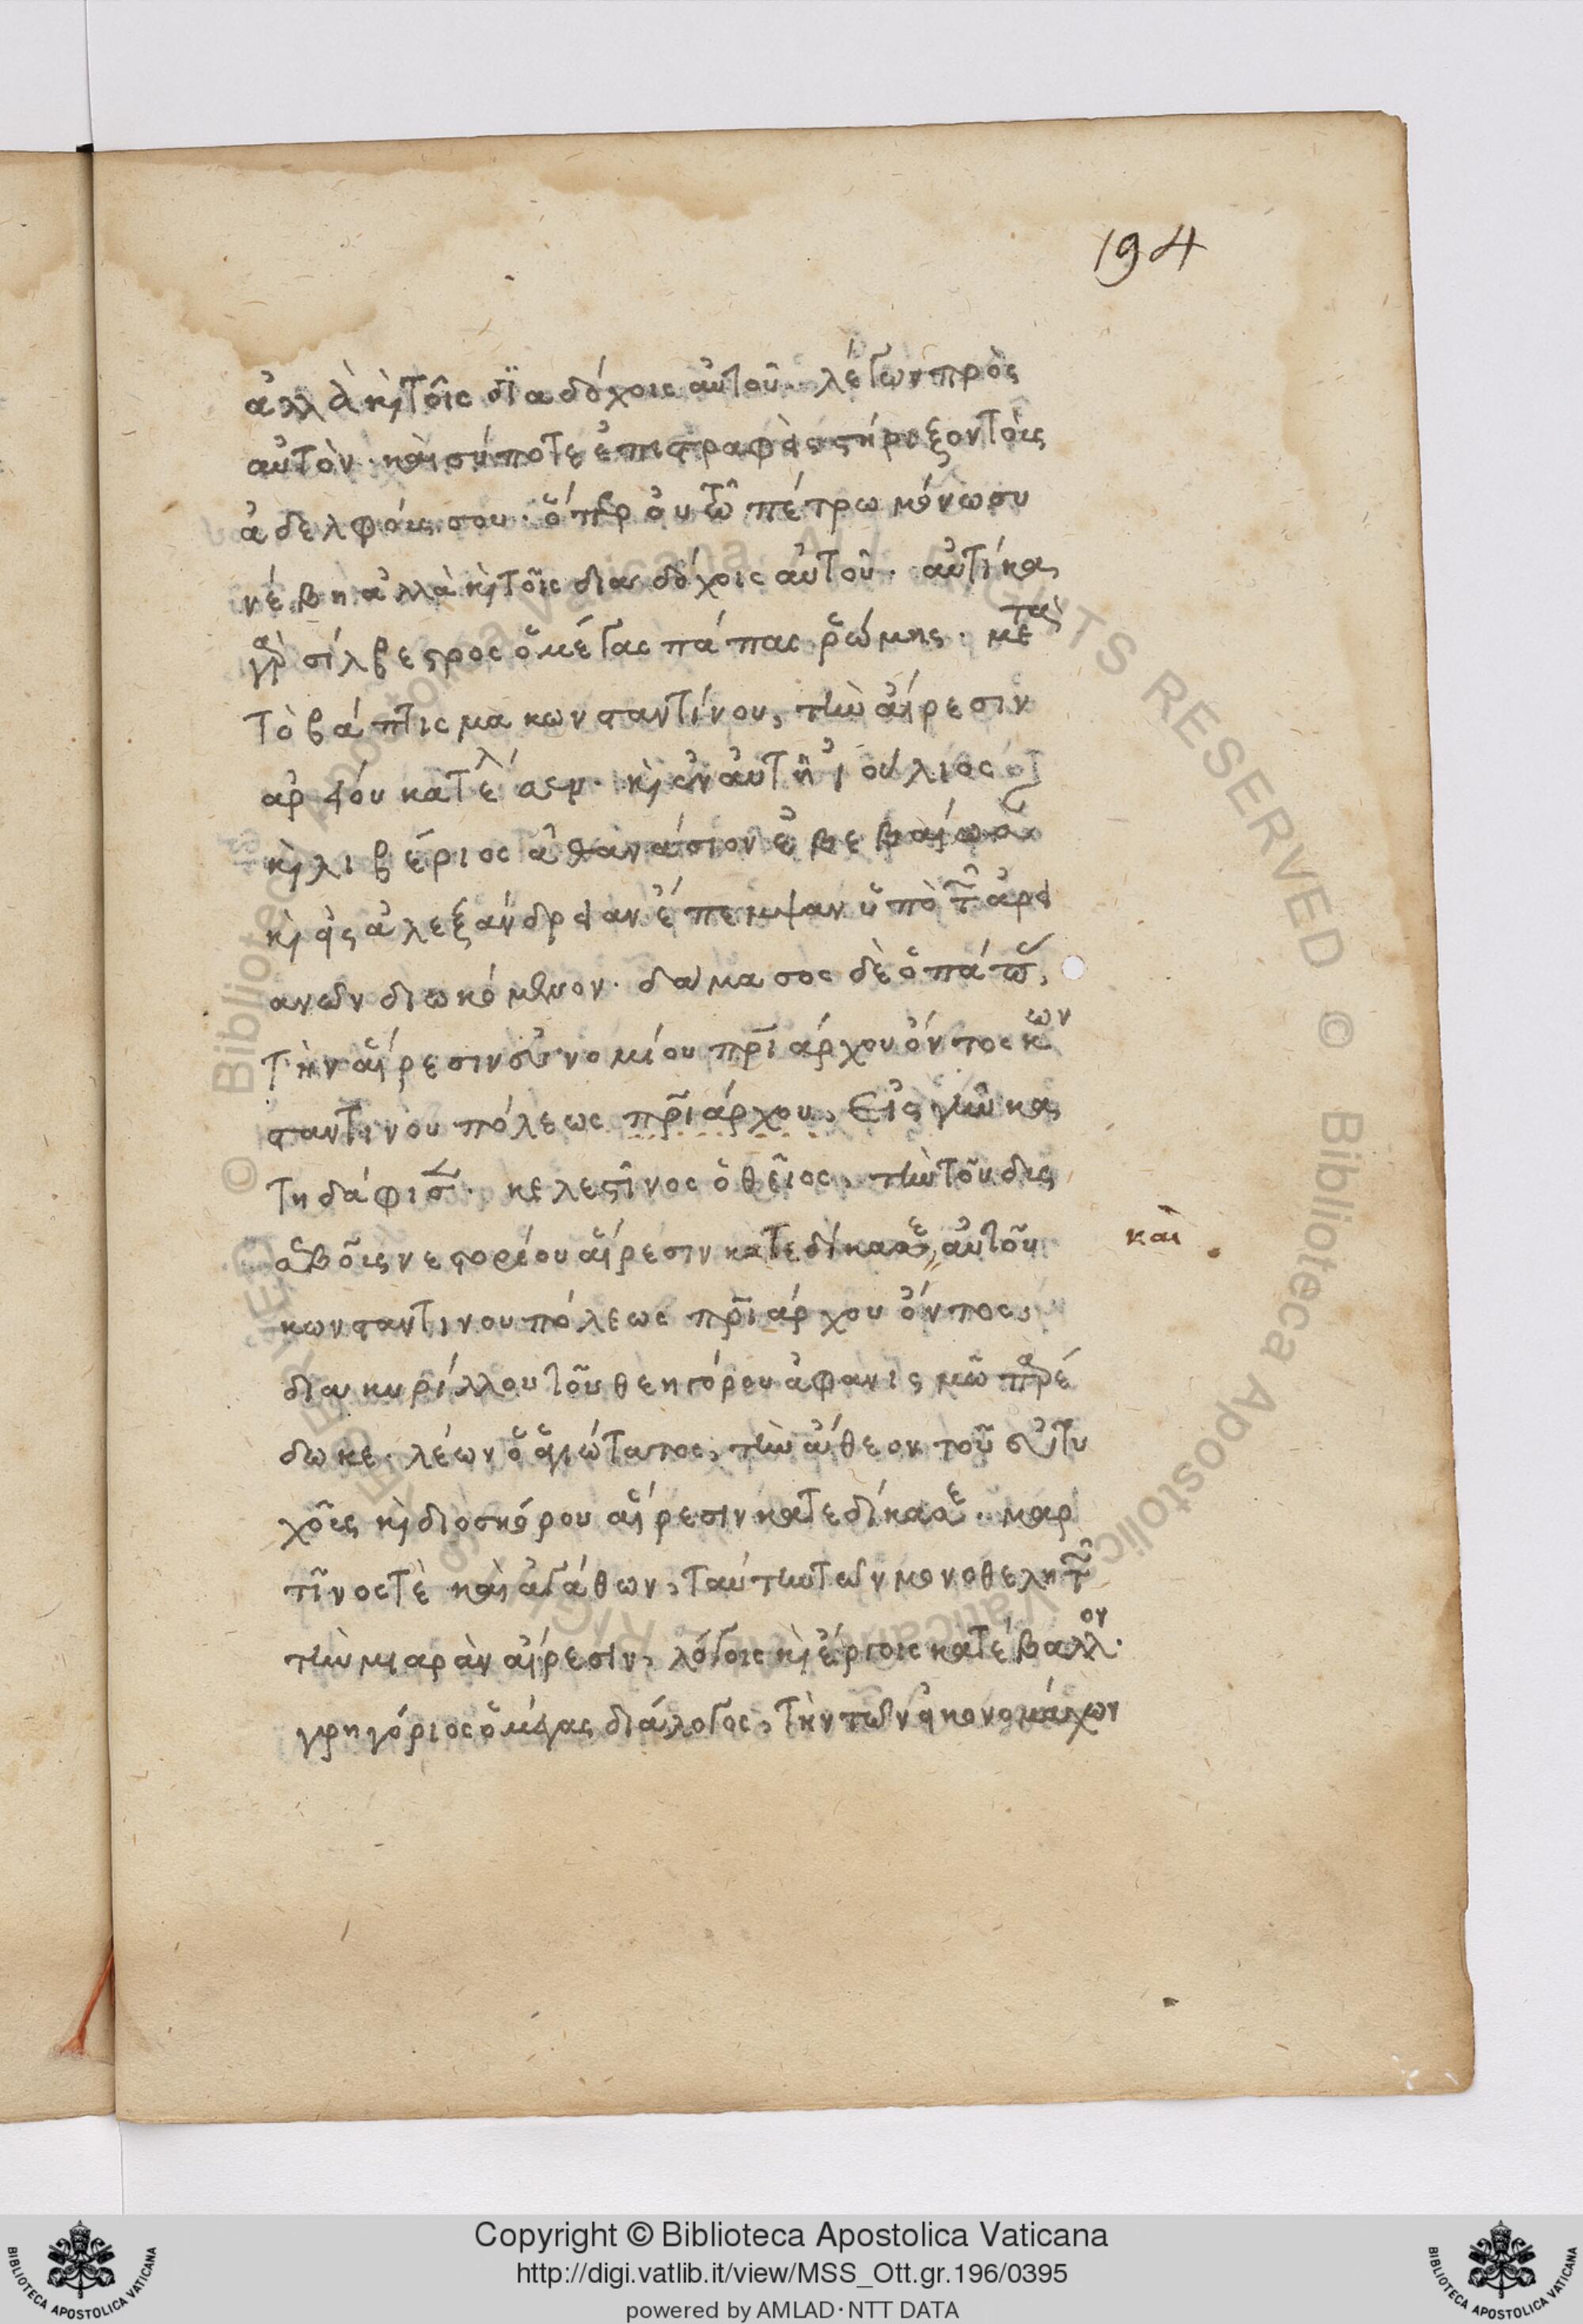 194
ἀλλὰ κ τοῖς διαδόχοις αὐτοῦ. λέγων πρὸς
αὐτὸν. καὶ σύ ποτε ἐπιστραφεὶς στήριξον τοὺς
ἀδελφούς σου. ὅπερ οὐ τῶ πέτρω μόνω συ
νέβη ἀλλὰ κ τοῖς διαδόχοις αὐτοῦ. αὐτίκα
γὰρ σίλβεστρος ὁ μέγας πάπας ῥώμης. μετὰ
τὸ βάπτισμα κωνσταντίνου, τὴν αἵρεσιν
ἀρείου κατέλυσεν. κ ἐν αὐτῆ ἰούλιος
κ λιβέριος ἀθανάσιον ἐβεβαίωσαν
κ εἰς ἀλεξάνδρειαν ἔπεμψαν ὑπὸ τῶν ἀρει
ανῶν διωκόμενον. δάμασος δὲ ὁ πάπας,
τὴν αἵρεσιν εὐνομίου πρϊάρχου ὄντος κων
σταντίνου πόλεως πρϊάρχου, εἰς γῆν κα
τηδάφισεν. κελεστῖνος ὁ θεῖος, τὴν τοῦ δυσ
σεβοῦς νεστορίου αἵρεσιν κατεδίκασε, αὐτοῦ
καὶ
κωνσταντινουπόλεως πρϊάρχου ὄντος,
δια κυρίλλου τοῦ θεηγόρου ἀφανισμῶ παρέ
δωκε. λέων ὁ ἁγιώτατος, τὴν ἄθεον τοῦ εὐτυ
χοῦς κ διοσκόρου αἵρεσιν κατεδίκασε. μαρ
τῖνος τὲ καὶ ἀγάθων, ταύτην τῶν μονοθελητῶν
τὴν μιαρὰν αἵρεσιν, λόγοις κ ἔργοις κατέβαλλον.
γρηγόριος ὁ μέγας διάλογος, τὴν τῶν εἰκονομάχων
Copyright © Biblioteca Apostolica Vaticana
http://digi.vatlib.it/view/MSS_Ott.gr.196/0395
powered by AMLAD·NTT DATA
BIBLIOTECA APOSTOLICA VATICANA
BIBLIOTECA APOSTOLICA VATICANA